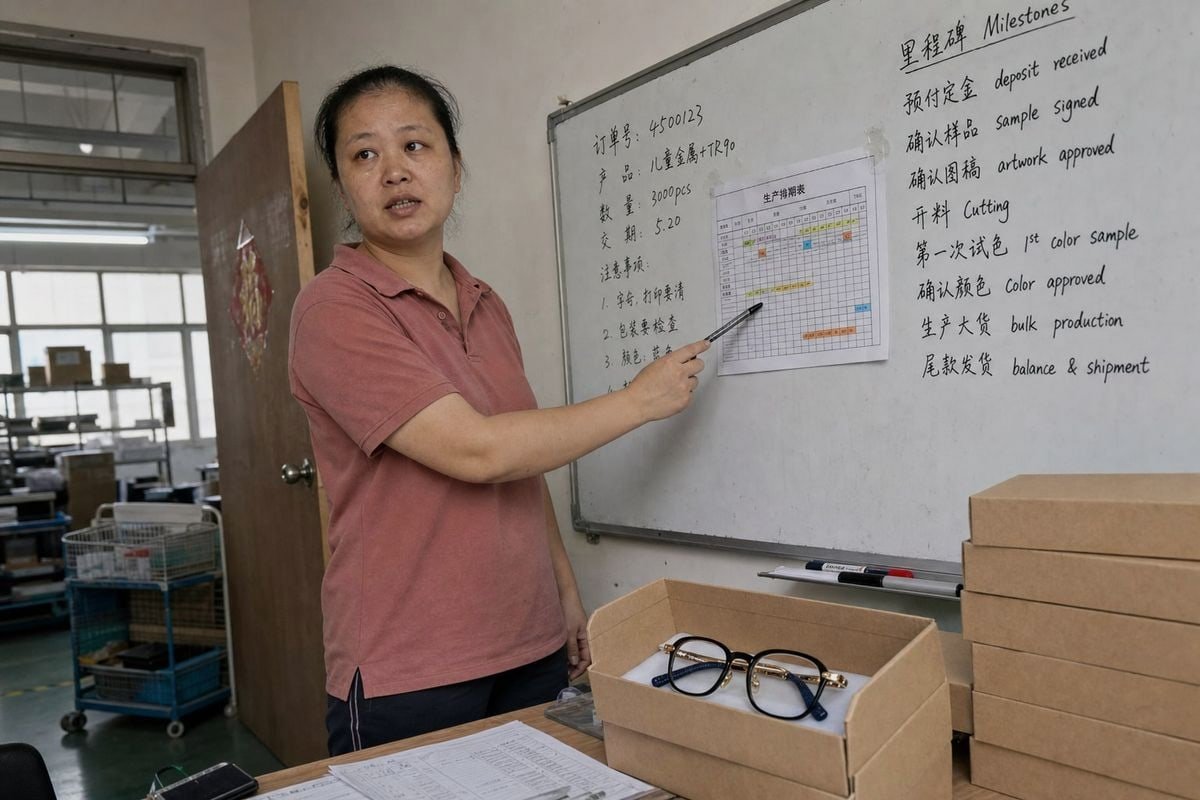 订单号：4500123
产品：儿童金属+TR90
数量：3000pcs
交期：5.20
注意事项：
1. 打印要清
2. 包装要检查
3. 颜色：
生产排期表
里程碑 Milestones
预付定金 deposit received
确认样品 sample signed
确认图稿 artwork approved
开料 Cutting
第一次试色 1st color sample
确认颜色 color approved
生产大货 bulk production
尾款发货 balance & shipment